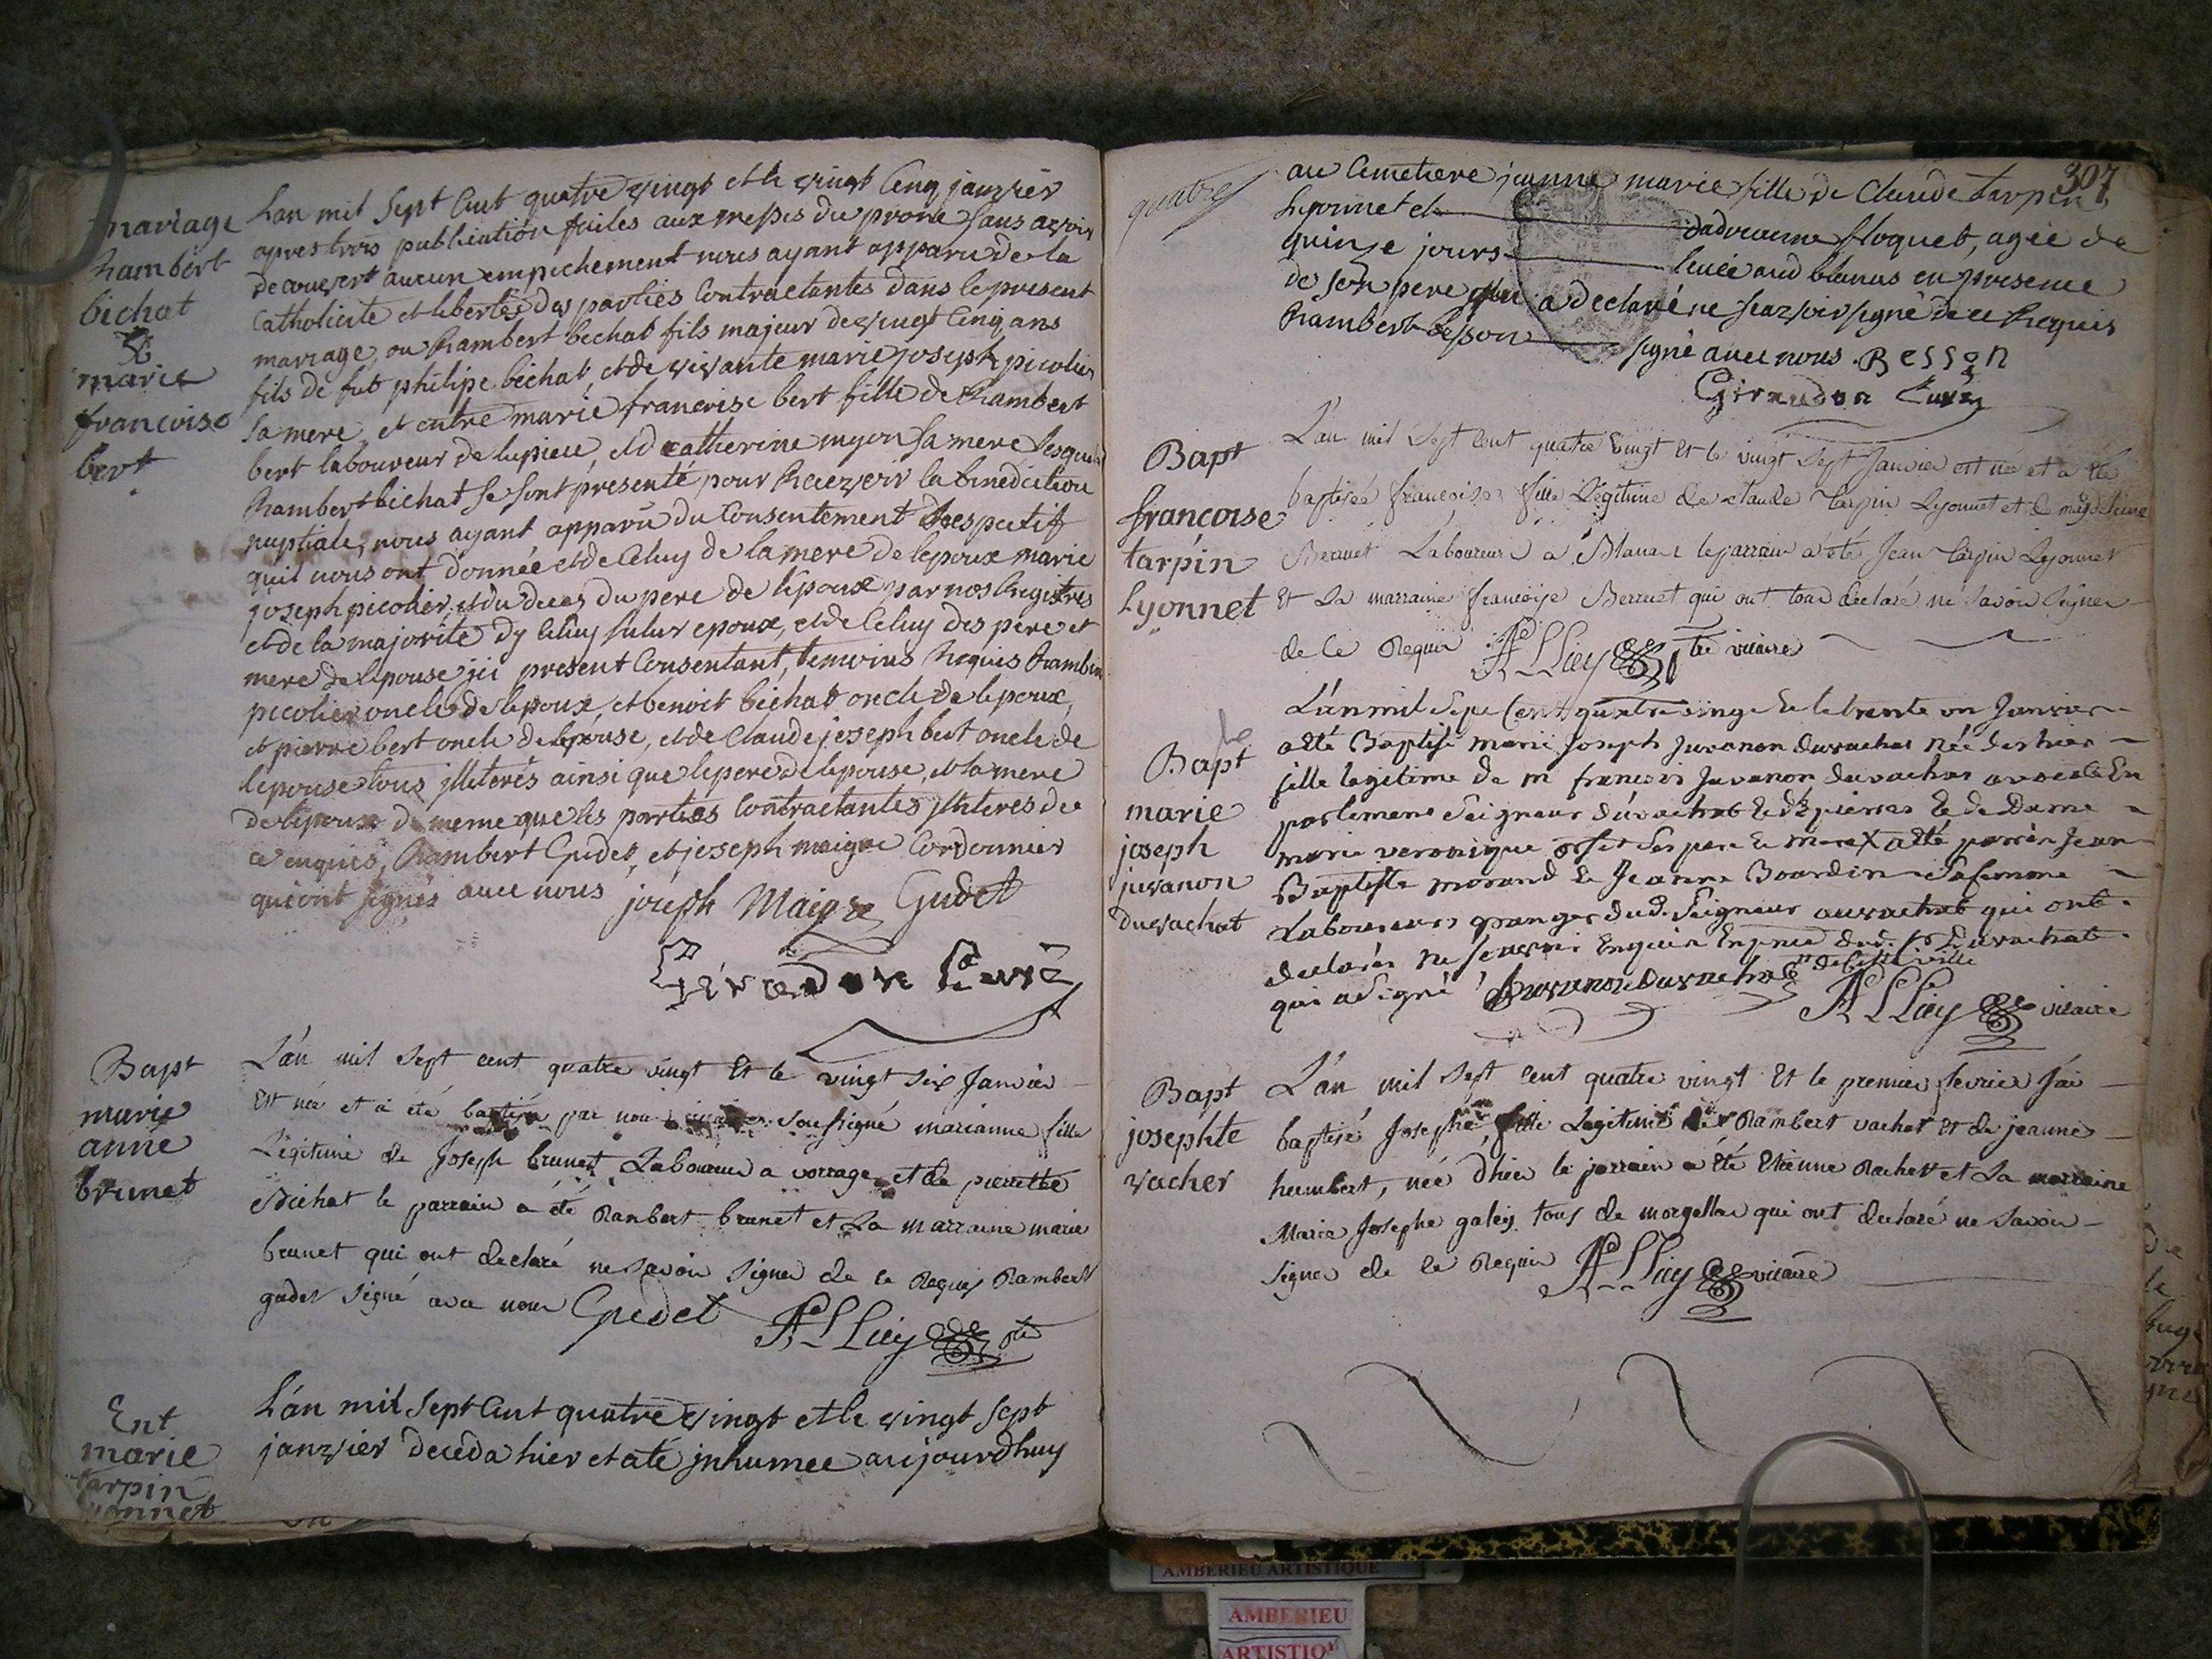 mariage
Rambert
bichat
&
marie
francoise
bert
Lan mil sept Cent quatre vingt et le vingt Cinq janvier
apres trois publication faites aux messes du prone sans avoir
decouvert aucun empechement nous ayant apparu de la
Catholicite et libertés des parties Contractantes dans le present
mariage, ou Rambert bechat fils majeur de vingt Cinq ans
fils de fut philipe bichat, et de vivante marie joseph picolier
sa mere, et entre marie francoise bert fille de Rambert
bert laboureur de lupieu, et d catherine myon sa mere lesquels
Rambert bichat se sont presenté pour Recevoir la benediction
nuptiale, nous ayant apparu du Consentement Respectif
quil nous ont donnée et de Celuy de la mere de lepoux marie
joseph picolier, et du deces du pere de lepoux par nos Registres
et de la majorité dy Celuy futur epoux, et de Celuy des pere et
mere de lepouse ici present Consentant, temoins Requis Rambert
picolier oncle de lepoux, et benoit bichat oncle de lepoux,
et pierre bert oncle de lepouse, et de Claude joseph bert oncle de
lepouse tous illiterés ainsi que le pere de lepouse, et la mere
de lepoux de meme que les parties Contractantes illiteres de
ce enquis, Rambert Gudet, et joseph maigre Cordonnier
qui ont signés avec nous joseph Maigre Gudet
Girandon Curé
Bapt
marie
anne
brunet
L'an mil sept cent quatre vingt Et le vingt six Janvier
Est née et a été baptisée par nous vicaire soussigné marianne fille
Légitime de Joseph brunet Laboureur a vorrage et de pierrette
Bichat le parrain a été Rambert brunet et La marraine marie
brunet qui ont declaré ne savoir signer de ce Requis Rambert
gudet signé avec nous Gudet
Ent
marie
tarpin
lyonnet
L'an mil sept Cent quatre vingt et le vingt sept
janvier deceda hier et a été inhumee aujourdhuy
307
quatre
au Cemetiere jeanne marie fille de Claude tarpin
Lyonnet et floquet, agée de
quinse jours en presence
de son pere qui a declaré ne scavoir signé de ce Requis
Rambert besson signé avec nous. Besson
Girandon Curé
Bapt
francoise
tarpin
Lyonnet
L'an mil sept cent quatre vingt Et le vingt sept Janvier est née et a été
baptisée françoise fille Légitime de claude tarpin Lyonnet et de magdeleine
Berruet Laboureur a Blanas le parrain a été Jean tarpin Lyonnet
Et La marraine françoise Berruet qui ont tous declaré ne savoir signer
de ce Requis vicaire
Bapt
marie
joseph
juvanon
duvachat
L'an mil sept Cent quatre vingt Et le trente un Janvier
a été Baptisé marie Joseph Juvanon duvachat née d'hier
fille legitime de m françois Juvanon duvachat avocat En
parlement seigneur duvachat Et d'Epierres Et de Dame
marie veronique orset ses pere Et mere a été parrin Jean
Baptiste morand Et Jeanne Bourdin sa femme
Laboureurs granger dud. Seigneur duvachat qui ont
declarés ne scavoir Enquis En pnce dud. Sr Duvachat
qui a signé Juvanon Duvachat
vicaire
Bapt
josephte
vacher
L'an mil sept cent quatre vingt Et le premier fevrier J'ai
baptisé Josephe, fille Legitime de Rambert vacher Et de jeanne
humbert, née d'hier le parrain a été Etienne Rachet et La marraine
Marie Josephe galey tous de morgellas qui ont declaré ne savoir
signer de ce Requis vicaire
AMBERIEU ARTISTIQUE
AMBERIEU
ARTISTIQ